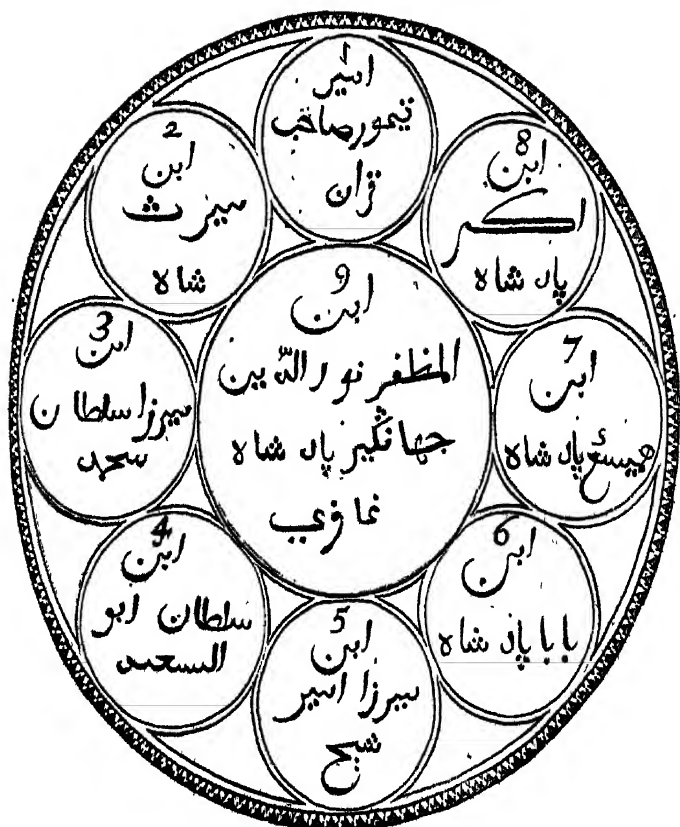 1
امیر
تیمور صاحب
قران
2
ابن
میرث
شاه
3
ابن
میرزا سلطان
محمد
4
ابن
سلطان ابو
السعید
5
ابن
میرزا امیر
شیخ
6
ابن
بابا پاد شاه
7
ابن
پاد شاه
8
ابن
اکبر
پاد شاه
9
ابن
المظفر نور الدین
جهانگیر پاد شاه